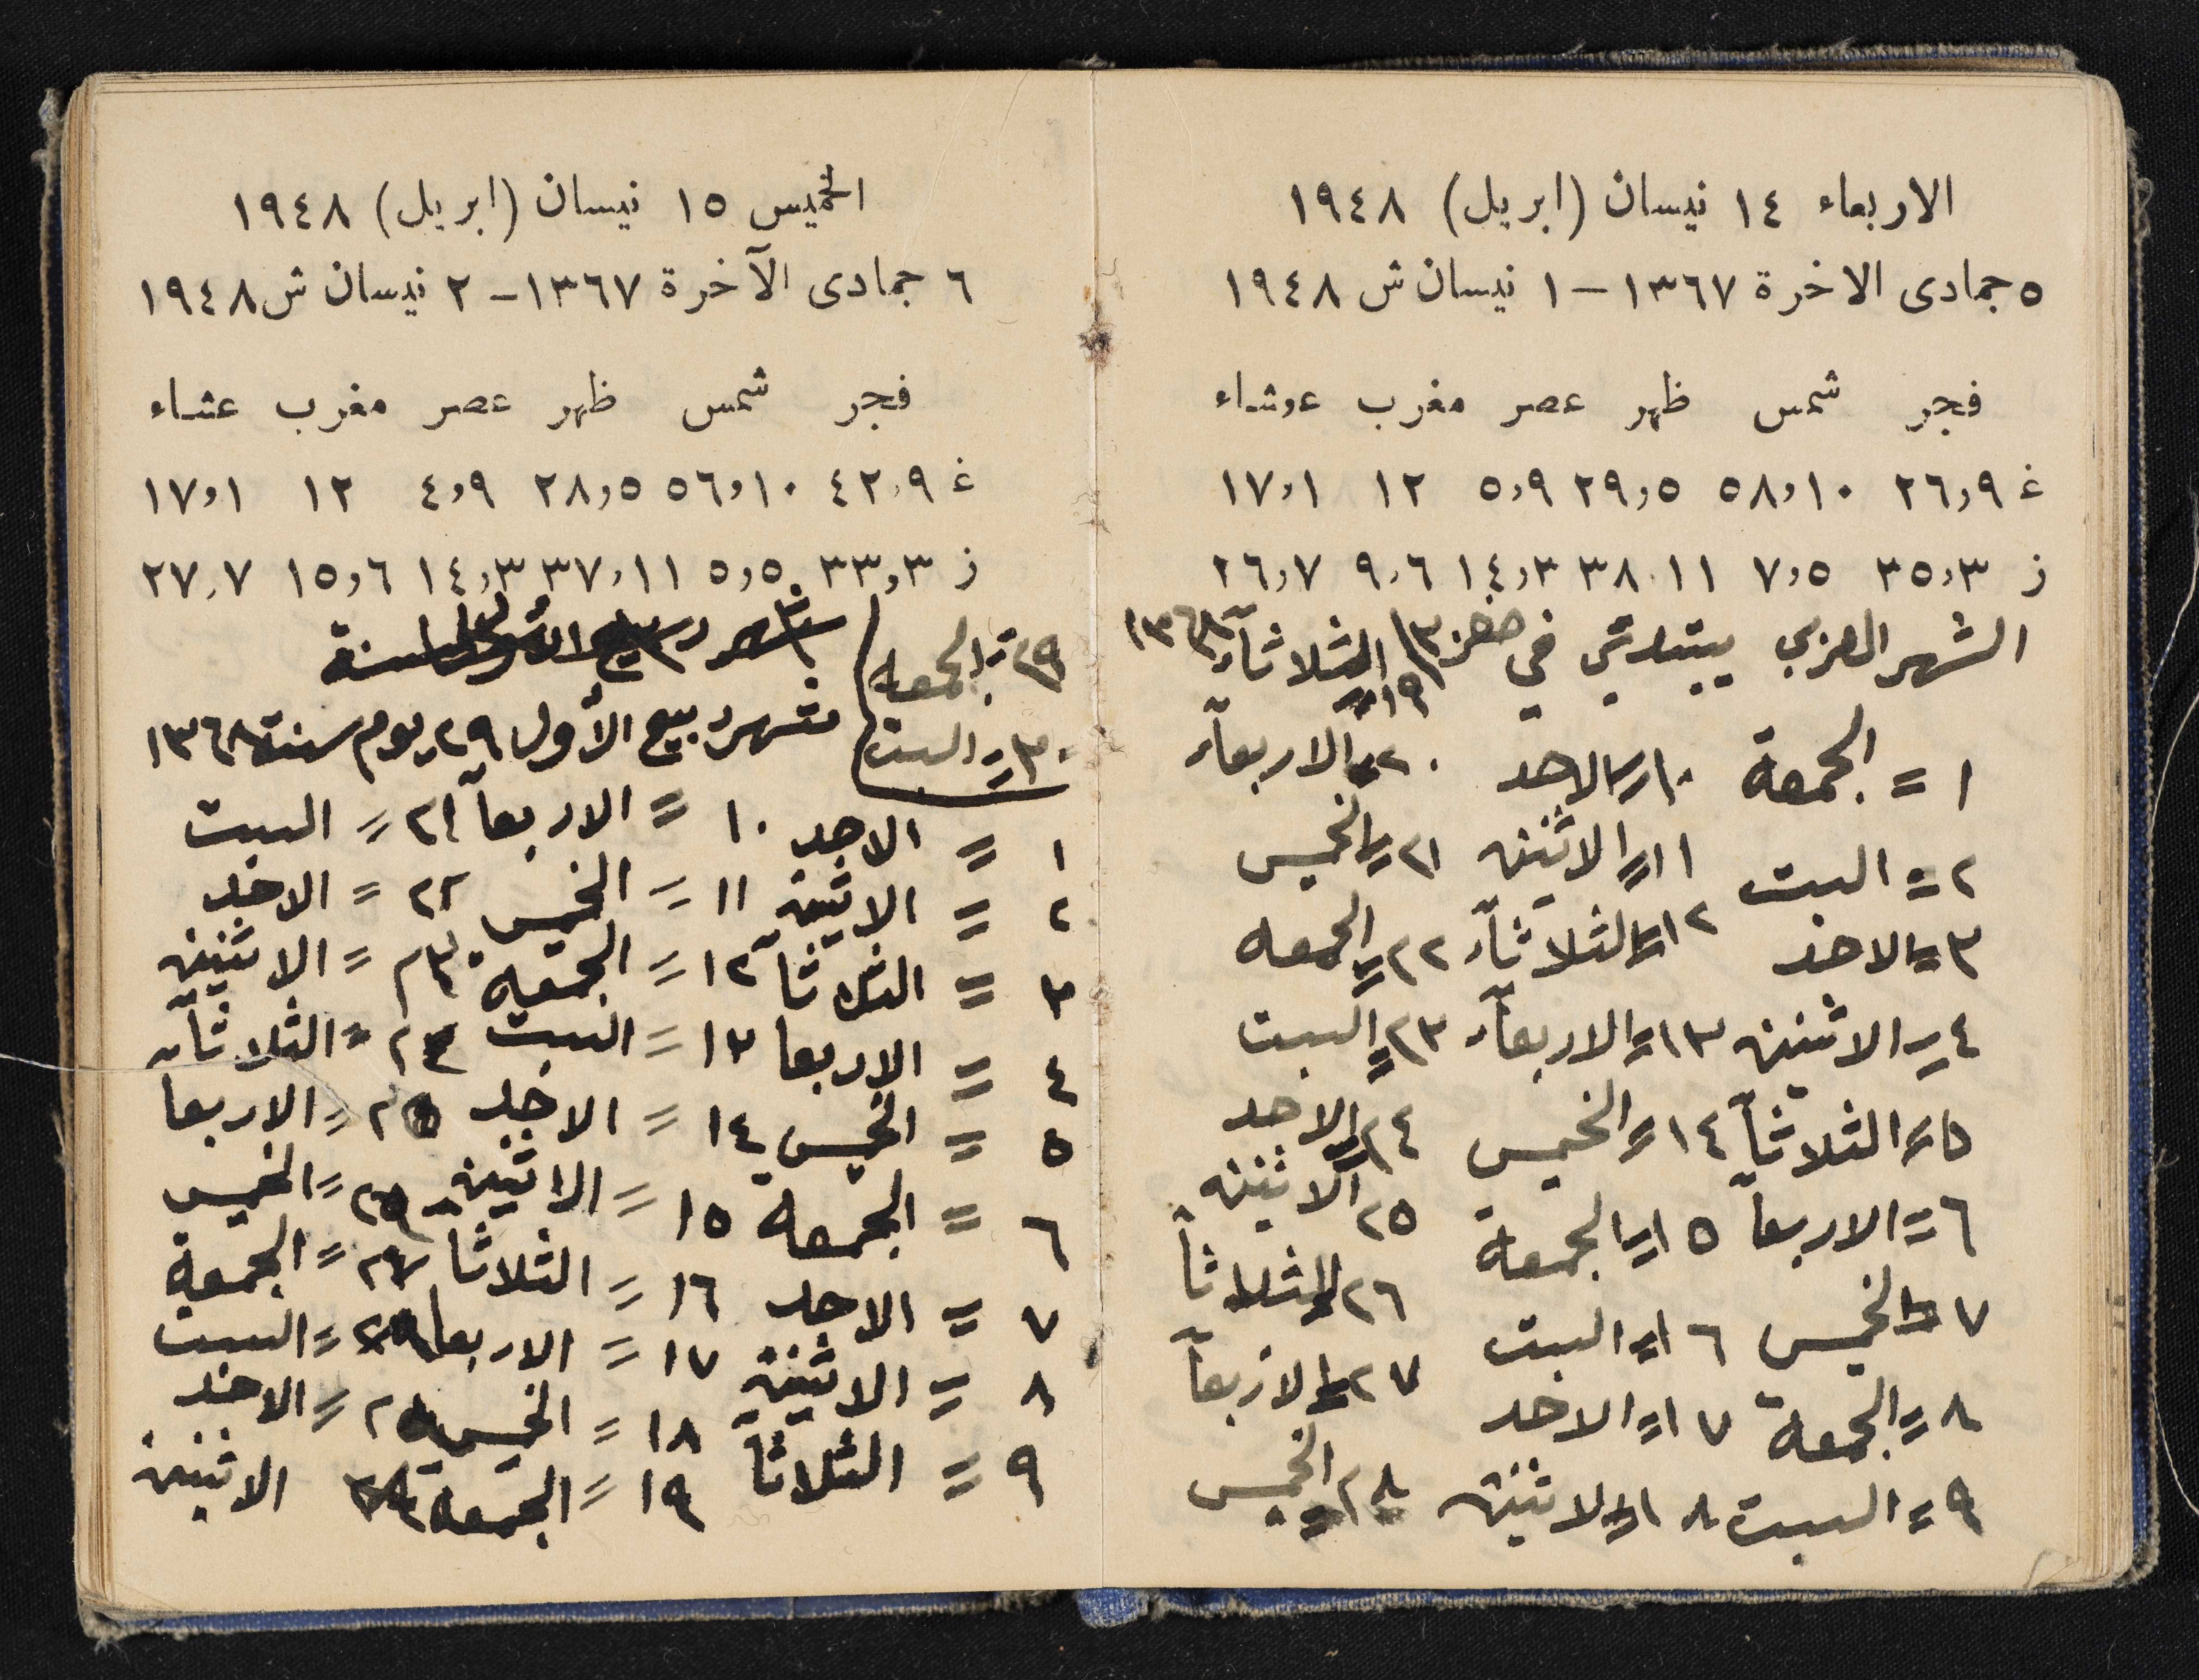 الاربعاء ١٤ نيسان (ابريل) ١٩٤٨
٥ جمادى الاخرة ١٣٦٧ – ١ نيسان ش ١٩٤٨
فجر شمس ظهر عصر مغرب عشاء
غ ٢٦,٩ ٥٨,١٠ ٢٩,٥ ٥,٩ ١٢ ١٧,١
ز ٣٥,٣ ٧,٥ ٣٨,١١ ١٤,٣ ٩,٦ ٢٦,٧
الشهر العربي يبتدئ في ١٣٦٨
١٩ = الثلاثآء
١ = الجمعة ١٠ = الاحد ٢٠ = الاربعآء
٢ = السبت ١١ = الاثنين ٢١ = الخميس
٣ = الاحد ١٢ = الثلاثآء ٢٢ = الجمعه
٤ = الاثنين ١٣ = الاربعآء ٢٣ = السبت
٥ = الثلاثآ ١٤ = الخميس ٢٤ = الاحد
٦ = الاربعآ ١٥ = الجمعة ٢٥ الاثنين
٧ = الخميس ١٦ = السبت ٢٦ = الثلاثآ
٨ = الجمعة ١٧ = الاحد ٢٧ = الاربعآ
٩ = السبت ١٨ = الاثنين ٢٨ = الخميس
الخميس ١٥ نيسان (ابريل) ١٩٤٨
٦ جمادى الآخرة ١٣٦٧ – ٢ نيسان ش ١٩٤٨
فجر شمس ظهر عصر مغرب عشاء
غ ٤٢,٩ ٥٦,١٠ ٢٨,٥ ٤,٩ ١٢ ١٧,١
ز ٣٣,٣ ٥,٥ ٣٧,١١ ١٤,٣ ١٥,٦ ٢٧,٧
٢٩ = الجمعه
٣٠ = السبت
شهر ربيع الأول ٢٩ يوم سنة ١٣٦٨
١ = الاحد ١٠ = الاربعآ ٢١ = السبت
٢ = الاثنين ١١ = الخميس ٢٢ = الاحد
٣ = الثلاثا ١٢ = الجمعة ٢٣ = الاثنين
٤ = الاربعا ١٣ = السبت ٢٤ = الثلاثآء
٥ = الخميس ١٤ = الاحد ٢٥ = الاربعا
٦ = الجمعه ١٥ = الاثنين = الخميس
٧ = الاحد ١٦ = الثلاثآ = الجمعة
٨ = الاثنين ١٧ = الاربعا = السبت
٩ = الثلاثآ ١٨ = الخميس = الاحد
١٩ = الجمعه الاثنين